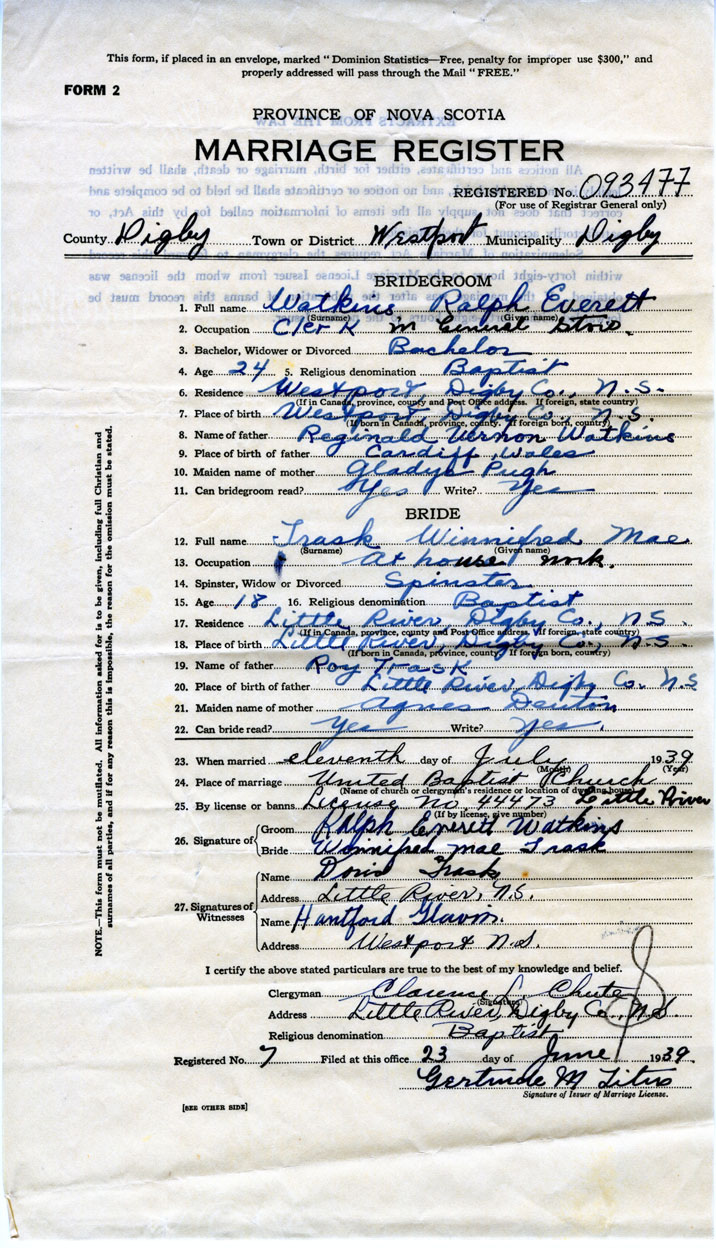 This form, if placed in an envelope, marked "Dominion Statistics—Free, penalty for improper use $300," and
properly addressed will pass through the Mail "FREE."
FORM 2
PROVINCE OF NOVA SCOTIA
MARRIAGE REGISTER
REGISTERED No. 093477
(For use of Registrar General only)
County Digby Town or District Westport Municipality Digby
BRIDEGROOM
1. Full name Watkins Ralph Everett
(Surname) (Given name)
2. Occupation Clerk in General Store.
3. Bachelor, Widower or Divorced Bachelor
4. Age 24 5. Religious denomination Baptist
6. Residence Westport, Digby Co., N.S.
(If in Canada, province, county and Post Office address. If foreign, state country)
7. Place of birth Westport, Digby Co., N.S.
(If born in Canada, province, county. If foreign born, country)
8. Name of father Reginald Vernon Watkins
9. Place of birth of father Cardiff, Wales
10. Maiden name of mother Gladys Pugh
11. Can bridegroom read? Yes Write? Yes
BRIDE
12. Full name Trask Winnifred Mae.
(Surname) (Given name)
13. Occupation At house work.
14. Spinster, Widow or Divorced Spinster
15. Age 18 16. Religious denomination Baptist
17. Residence Little River, Digby Co., N.S.
(If in Canada, province, county and Post Office address. If foreign, state country)
18. Place of birth Little River, Digby Co., N.S.
(If born in Canada, province, county. If foreign born, country)
19. Name of father Roy Trask
20. Place of birth of father Little River, Digby Co. N.S
21. Maiden name of mother Agnes Denton
22. Can bride read? Yes Write? Yes.
23. When married eleventh day of July 1939
(Month) (Year)
24. Place of marriage United Baptist Church
(Name of church or clergyman's residence or location of dwelling house)
25. By license or banns License No. 44473 Little River
(If by license, give number)
26. Signature of
Groom Ralph Everett Watkins
Bride Winnifred Mae Trask
27. Signatures of Witnesses
Name Doris Trask
Address Little River, N.S.
Name
Address Westport N.S.
I certify the above stated particulars are true to the best of my knowledge and belief.
Clergyman Clarence L. Chute
(Signature)
Address Little River, Digby Co., N.S.
Religious denomination Baptist
Registered No. 7 Filed at this office 23 day of June 1939.
Gertrude M Titus
Signature of Issuer of Marriage License.
[SEE OTHER SIDE]
NOTE.—This form must not be mutilated. All information asked for is to be given, including full Christian and
surnames of all parties, and if for any reason this is impossible, the reason for the omission must be stated.